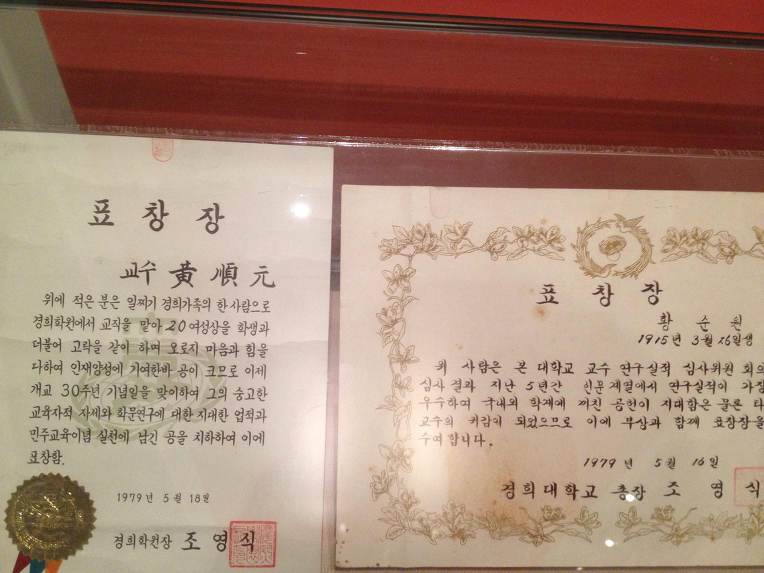 표창장
교수 黃順元
위에 적은 분은 일찌기 경희가족의 한 사람으로
경희학원에서 교직을 맡아 20여성상을 학생과
더불어 고락을 같이 하며 오로지 마음과 힘을
다하여 인재양성에 기여한바 공이 크므로 이제
개교 30주년 기념일을 맞이하여 그의 숭고한
교육자적 자세와 학문연구에 대한 지대한 업적과
민주교육이념 실천에 남긴 공을 치하하여 이에
표창함.
1979년 5월 18일
경희학원장 조영식
표창장
황순원
1915년 3월 26일생
위 사람은 본 대학교 교수 연구실적 심사위원 회의
심사결과 지난 5년간 인문계열에서 연구실적이 가장
우수하여 국내외 학계에 끼친 공헌이 지대함은 물론 타
교수의 귀감이 되었으므로 이에 부상과 함께 표창장을
수여합니다.
1979년 5월 16일
경희대학교 총장 조영식